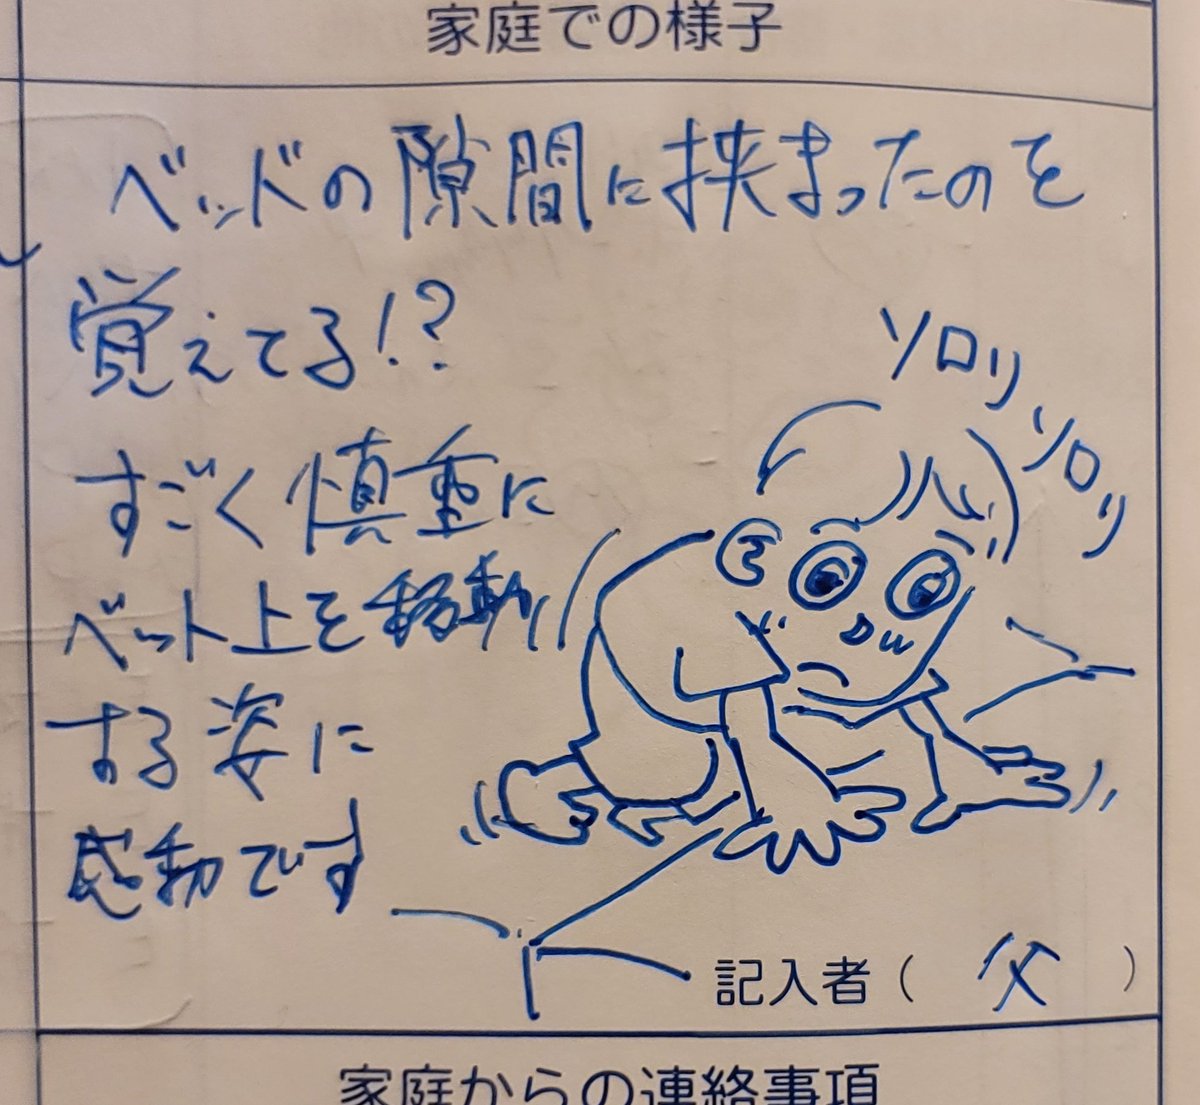 家庭での様子
ベッドの隙間に挟まったのを
覚えてる!?
すごく慎重に
ベット上を移動
する姿に
感動です
ソロリ
ソロリ
記入者( 父 )
家庭からの連絡事項